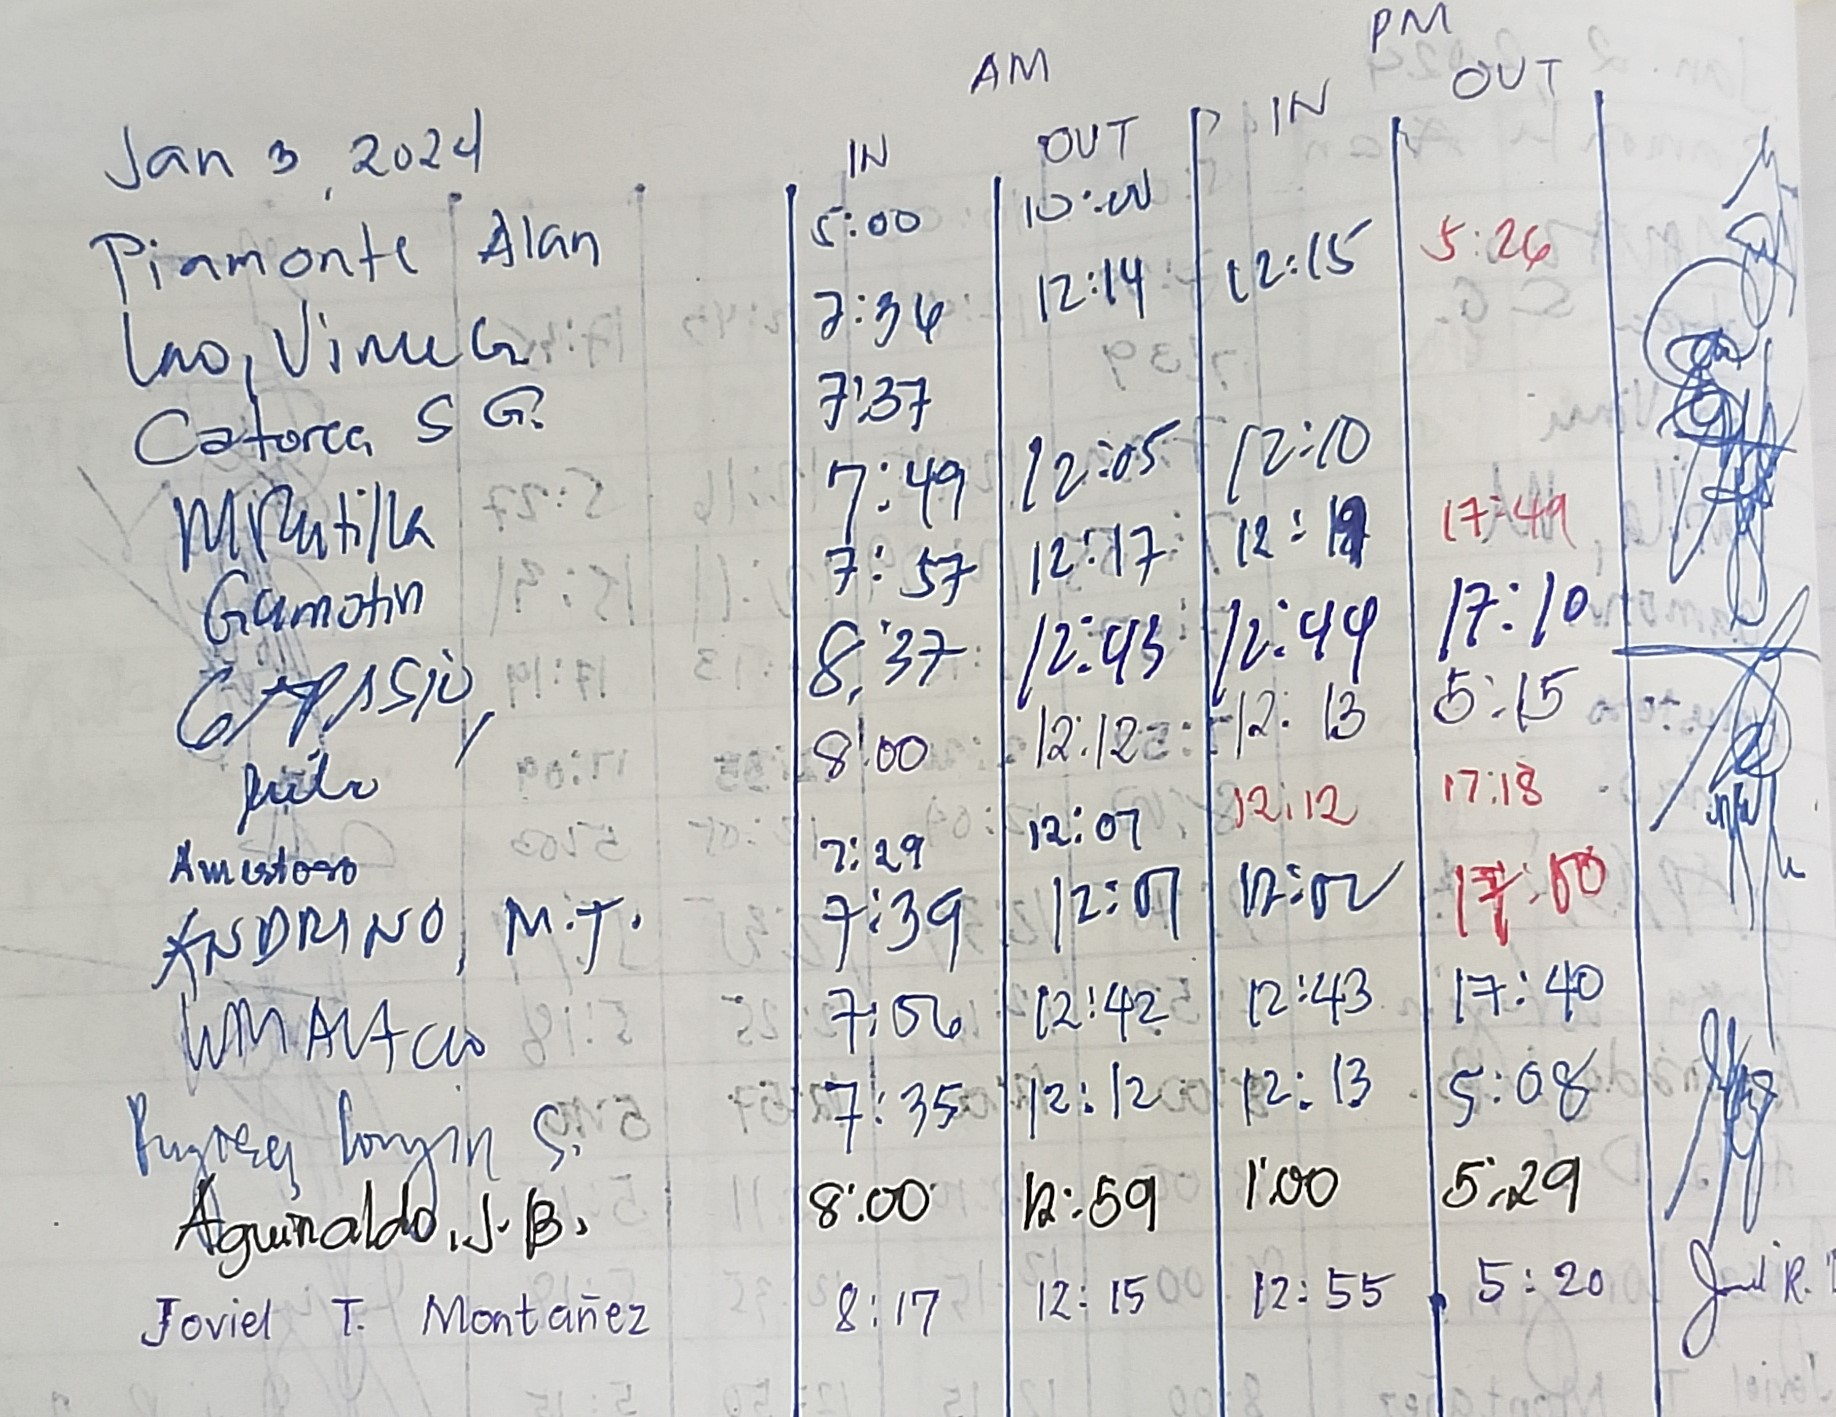 AM PM
Jan 3, 2024 IN OUT IN OUT
Piamonte Alan 5:00 10:00
Lao, Vime G. 7:36 12:14 12:15 5:26
Catorce S G. 7:37
MRutilla 7:49 12:05 12:10
Gamotin 7:57 12:17 12:19 17:49
8:37 12:43 12:44 17:10
8:00 12:12 12:13 5:15
Amistoso 7:29 12:07 12:12 17:18
ANDRINO, M.T. 7:39 12:01 12:02 17:00
7:06 12:42 12:43 17:40
S. 7:35 12:12 12:13 5:08
Aguinaldo, J. B. 8:00 12:59 1:00 5:29
Joviel T. Montañez 8:17 12:15 12:55 5:20